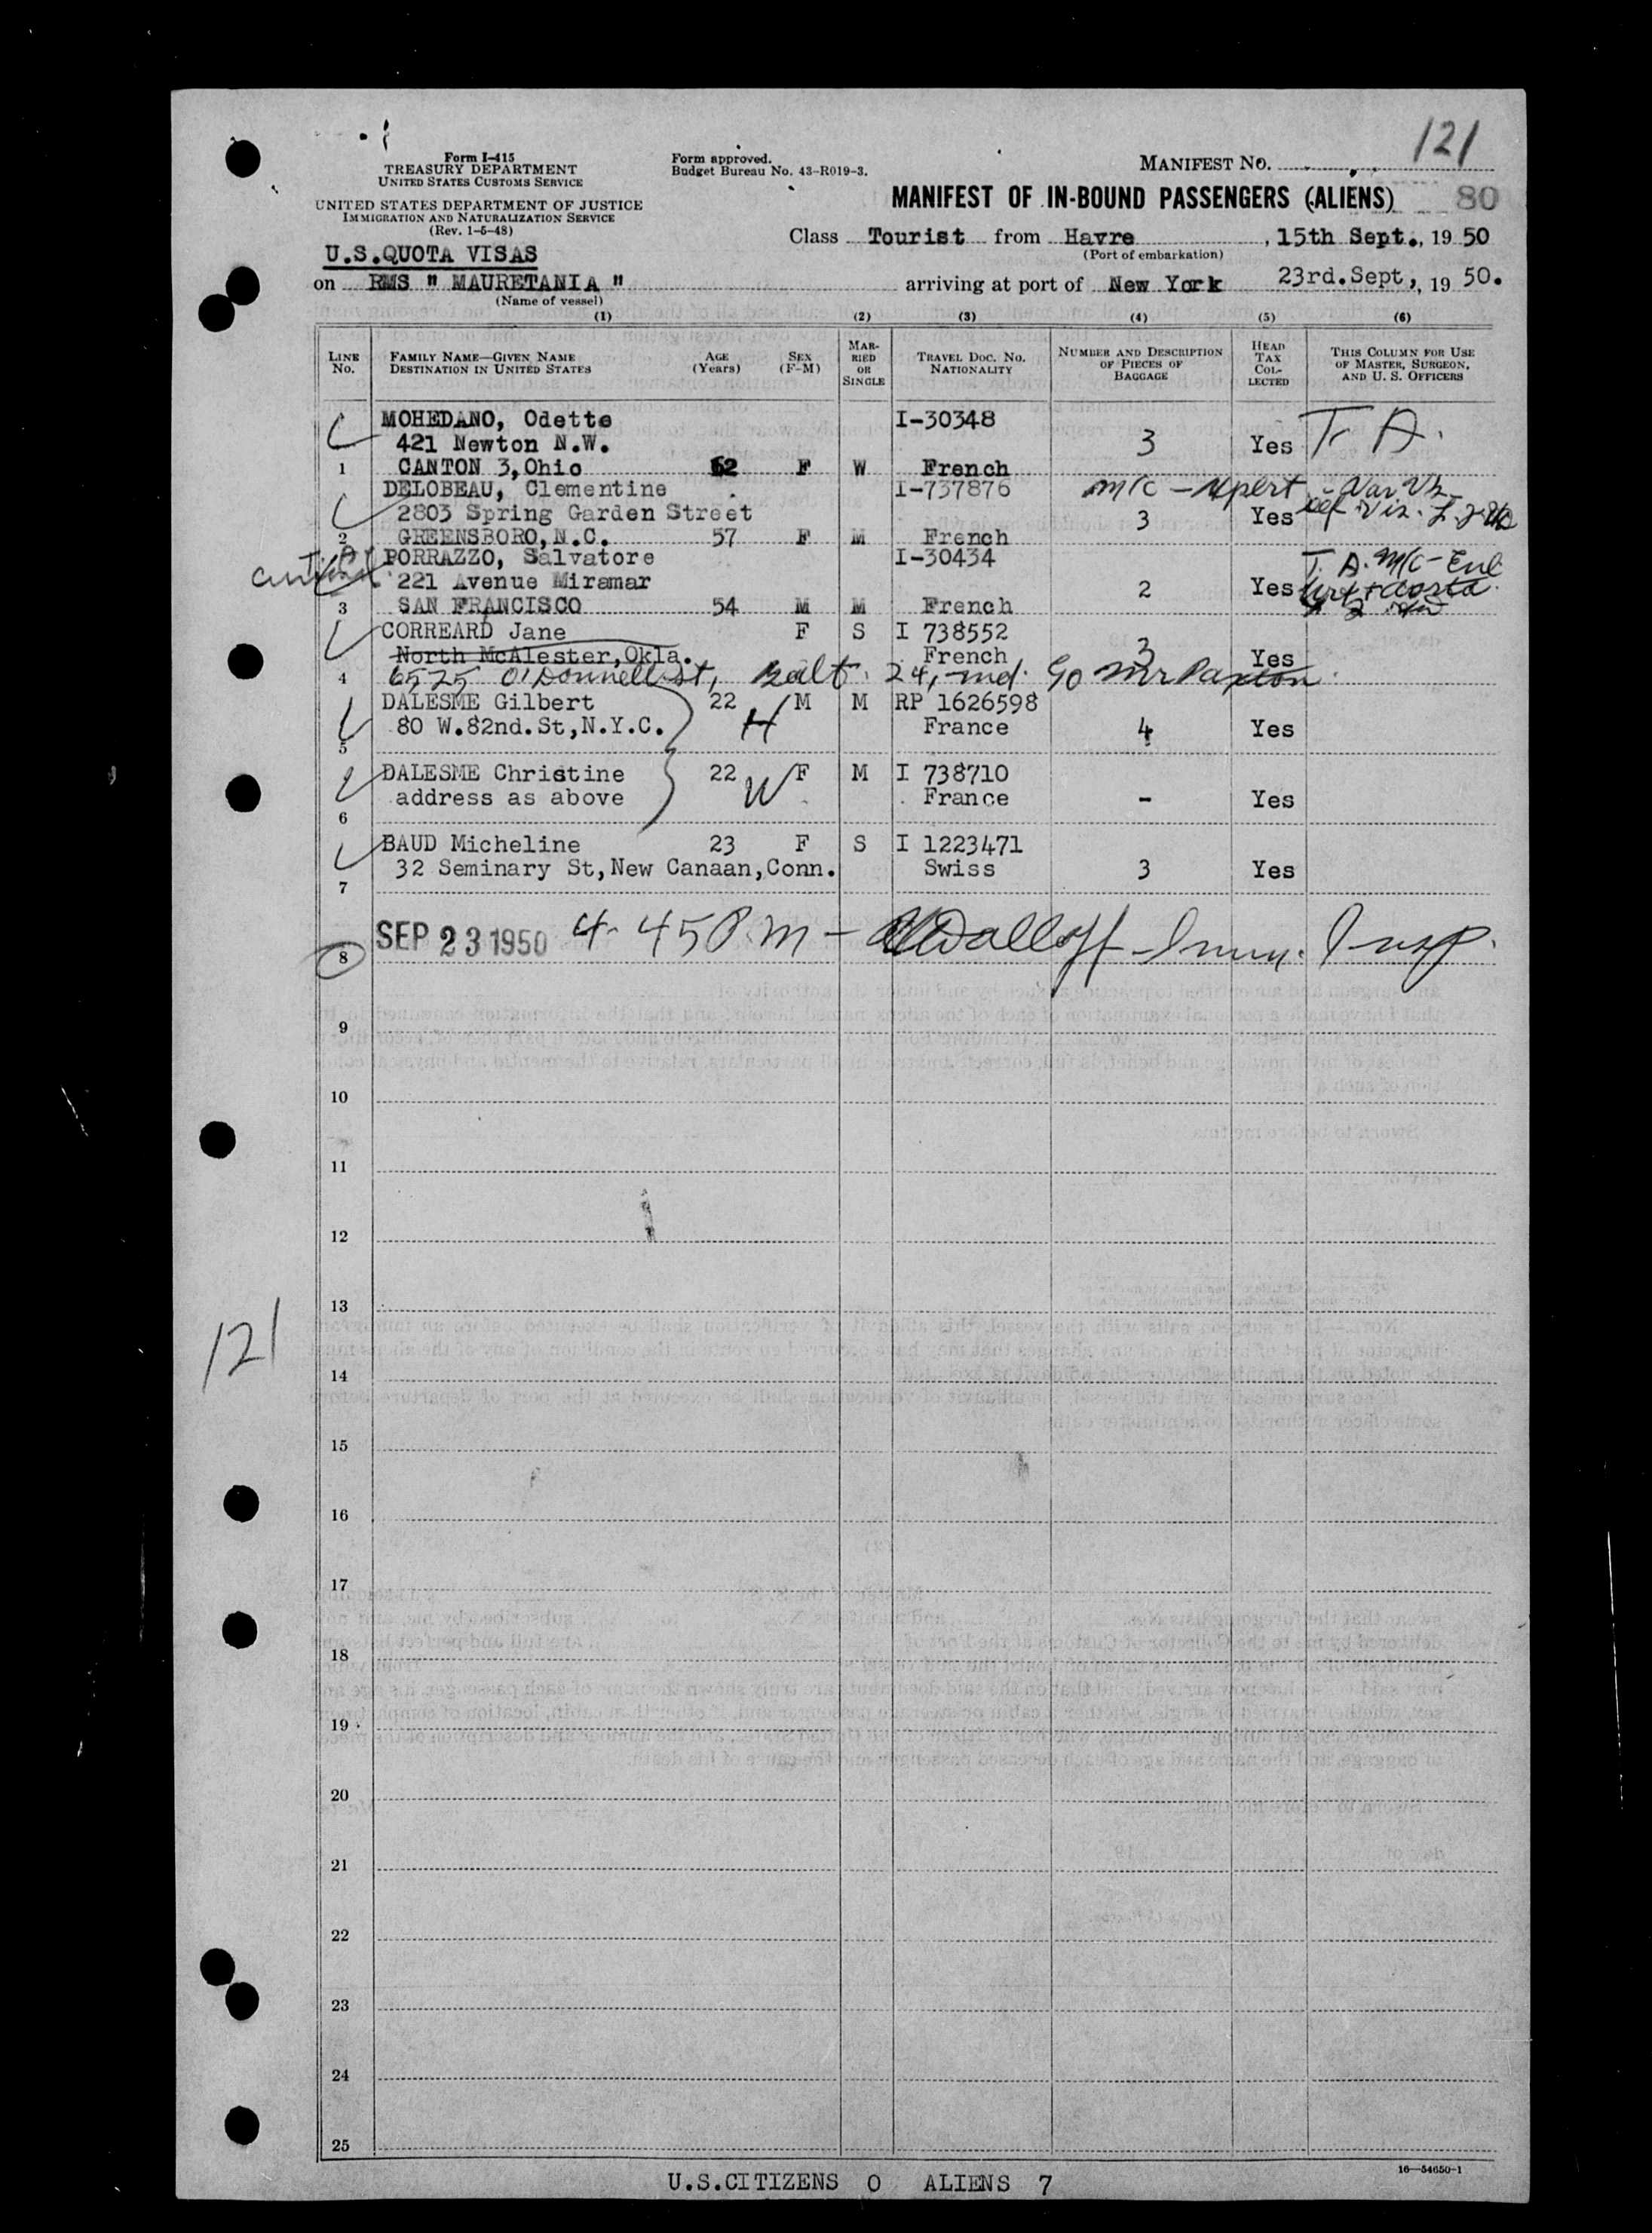 121
Form I-415
TREASURY DEPARTMENT
UNITED STATES CUSTOMS SERVICE
UNITED STATES DEPARTMENT OF JUSTICE
IMMIGRATION AND NATURALIZATION SERVICE
(Rev. 1-6-48)
Form approved.
Budget Bureau No. 43-R019-3.
MANIFEST NO.
MANIFEST OF IN-BOUND PASSENGERS (ALIENS) 80
Class Tourist from Havre, 15th Sept., 19 50
(Port of embarkation)
U.S.QUOTA VISAS
on RMS " MAURETANIA " arriving at port of New York 23rd.Sept, 19 50.
(Name of vessel)
(1) (2) (3) (4) (5) (6)
LINE NO. FAMILY NAME—GIVEN NAME DESTINATION IN UNITED STATES AGE (Years) SEX (F-M) MARRIED OR SINGLE TRAVEL DOC. NO. NATIONALITY NUMBER AND DESCRIPTION OF PIECES OF BAGGAGE HEAD TAX COLLECTED THIS COLUMN FOR USE OF MASTER, SURGEON, AND U. S. OFFICERS
MOHEDANO, Odette I-30348
421 Newton N.W. 3 Yes T. A.
1 CANTON 3, Ohio 62 F W French
DELOBEAU, Clementine I-737876 M/C
2803 Spring Garden Street 3 Yes
2 GREENSBORO, N.C. 57 F M French
T. A. PORRAZZO, Salvatore I-30434 T. A. M/C
221 Avenue Miramar 2 Yes
3 SAN FRANCISCO 54 M M French
CORREARD Jane F S I 738552
North McAlester, Okla. French 3 Yes
4 6525 O'Donnell St, Balt. 24, Md. c/o Mr Paxton
DALESME Gilbert 22 H M M RP 1626598
80 W.82nd.St, N.Y.C. France 4 Yes
5
DALESME Christine 22 W F M I 738710
address as above France - Yes
6
BAUD Micheline 23 F S I 1223471
32 Seminary St, New Canaan, Conn. Swiss 3 Yes
7
SEP 23 1950 4.45 P.m - Imm. Insp.
8
9
10
11
12
13
121
14
15
16
17
18
19
20
21
22
23
24
25
16—54650-1
U.S.CITIZENS 0 ALIENS 7